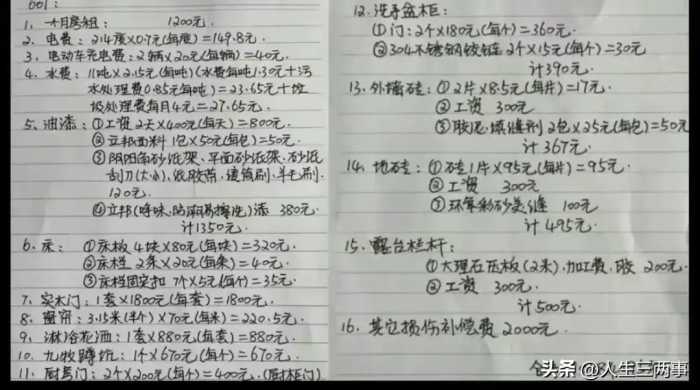 001:
1. 一个月房租: 1200元.
2. 电费: 214度×0.7元(每度)=149.8元.
3. 电动车充电费: 2辆×20元(每辆)=40元.
4. 水费: 11吨×2.15元(每吨)(水费每吨1.30元+污
水处理费0.85元每吨)=23.65元+垃
圾处理费每月4元=27.65元.
5. 油漆: ①工资2天×400元(每天)=800元.
②立邦面料 1包×50元(每包)=50元.
③阴阳角砂纸架、平面砂纸架、砂纸
刮刀(大小)、纸胶带、边角刷、羊毛刷.
120元.
④立邦(净味.防霉易擦洗)漆 380元.
计1350元.
6. 床: ①床板 4块×80元(每块)=320元.
②床档 2条×20元(每条)=40元.
③床档固定扣 7个×5元(每个)=35元.
7. 实木门: 1套×1800元(每套)=1800元.
8. 窗帘: 3.15米(半个)×70元(每米)=220.5元.
9. 淋浴花洒: 1套×880元(每套)=880元.
10. 九牧蹲坑: 1个×670元(每个)=670元.
11. 厨房门: 2个×200元(每个)=400元.(厨柜门)
12. 洗手盆柜:
①门: 2个×180元(每个)=360元.
②304不锈钢铰链 2个×15元(每个)=30元
计390元.
13. 外墙砖: ①2片×8.5元(每片)=17元.
②工资 300元.
③胶泥.填缝剂 2包×25元(每包)=50元
计367元.
14. 地砖: ①砖1片×95元(每片)=95元.
②工资 300元.
③环氧彩砂美缝 100元
计495元.
15. 露台栏杆:
①大理石压板(2米).加工费、胶 200元.
②工资 300元.
计500元.
16. 其它损伤补偿费 2000元.
头条 @人生三两事